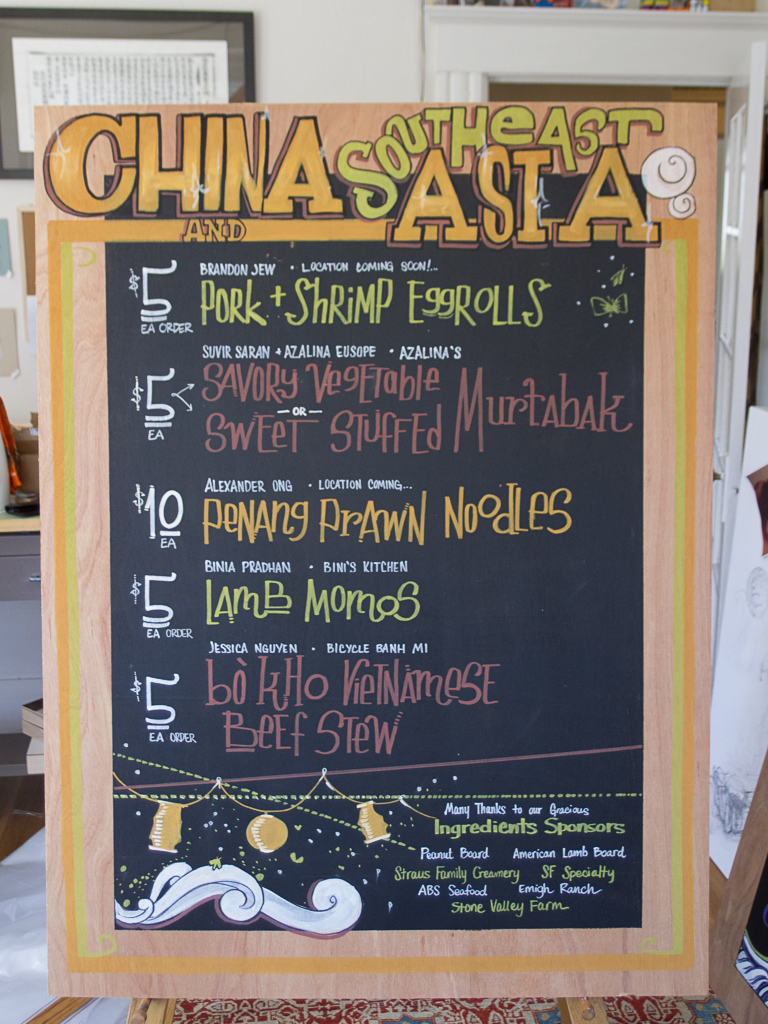 CHINA SOUTHEAST
AND ASIA
BRANDON JEW • LOCATION COMING SOON!...
$5 PORK + SHRIMP EGGROLLS
EA ORDER
SUVIR SARAN + AZALINA EUSOPE • AZALINA'S
SAVORY VEGETABLE
$5 —OR— MURTABAK
SWEET STUFFED
EA
ALEXANDER ONG • LOCATION COMING...
$10 PENANG PRAWN NOODLES
EA
BINIA PRADHAN • BINI'S KITCHEN
$5 LAMB MOMOS
EA ORDER
JESSICA NGUYEN • BICYCLE BANH MI
$5 bò KHO VIETNAMESE
BEEF STEW
EA ORDER
Many Thanks to our Gracious
Ingredients Sponsors
Peanut Board American Lamb Board
Straus Family Creamery SF Specialty
ABS Seafood Emigh Ranch
Stone Valley Farm